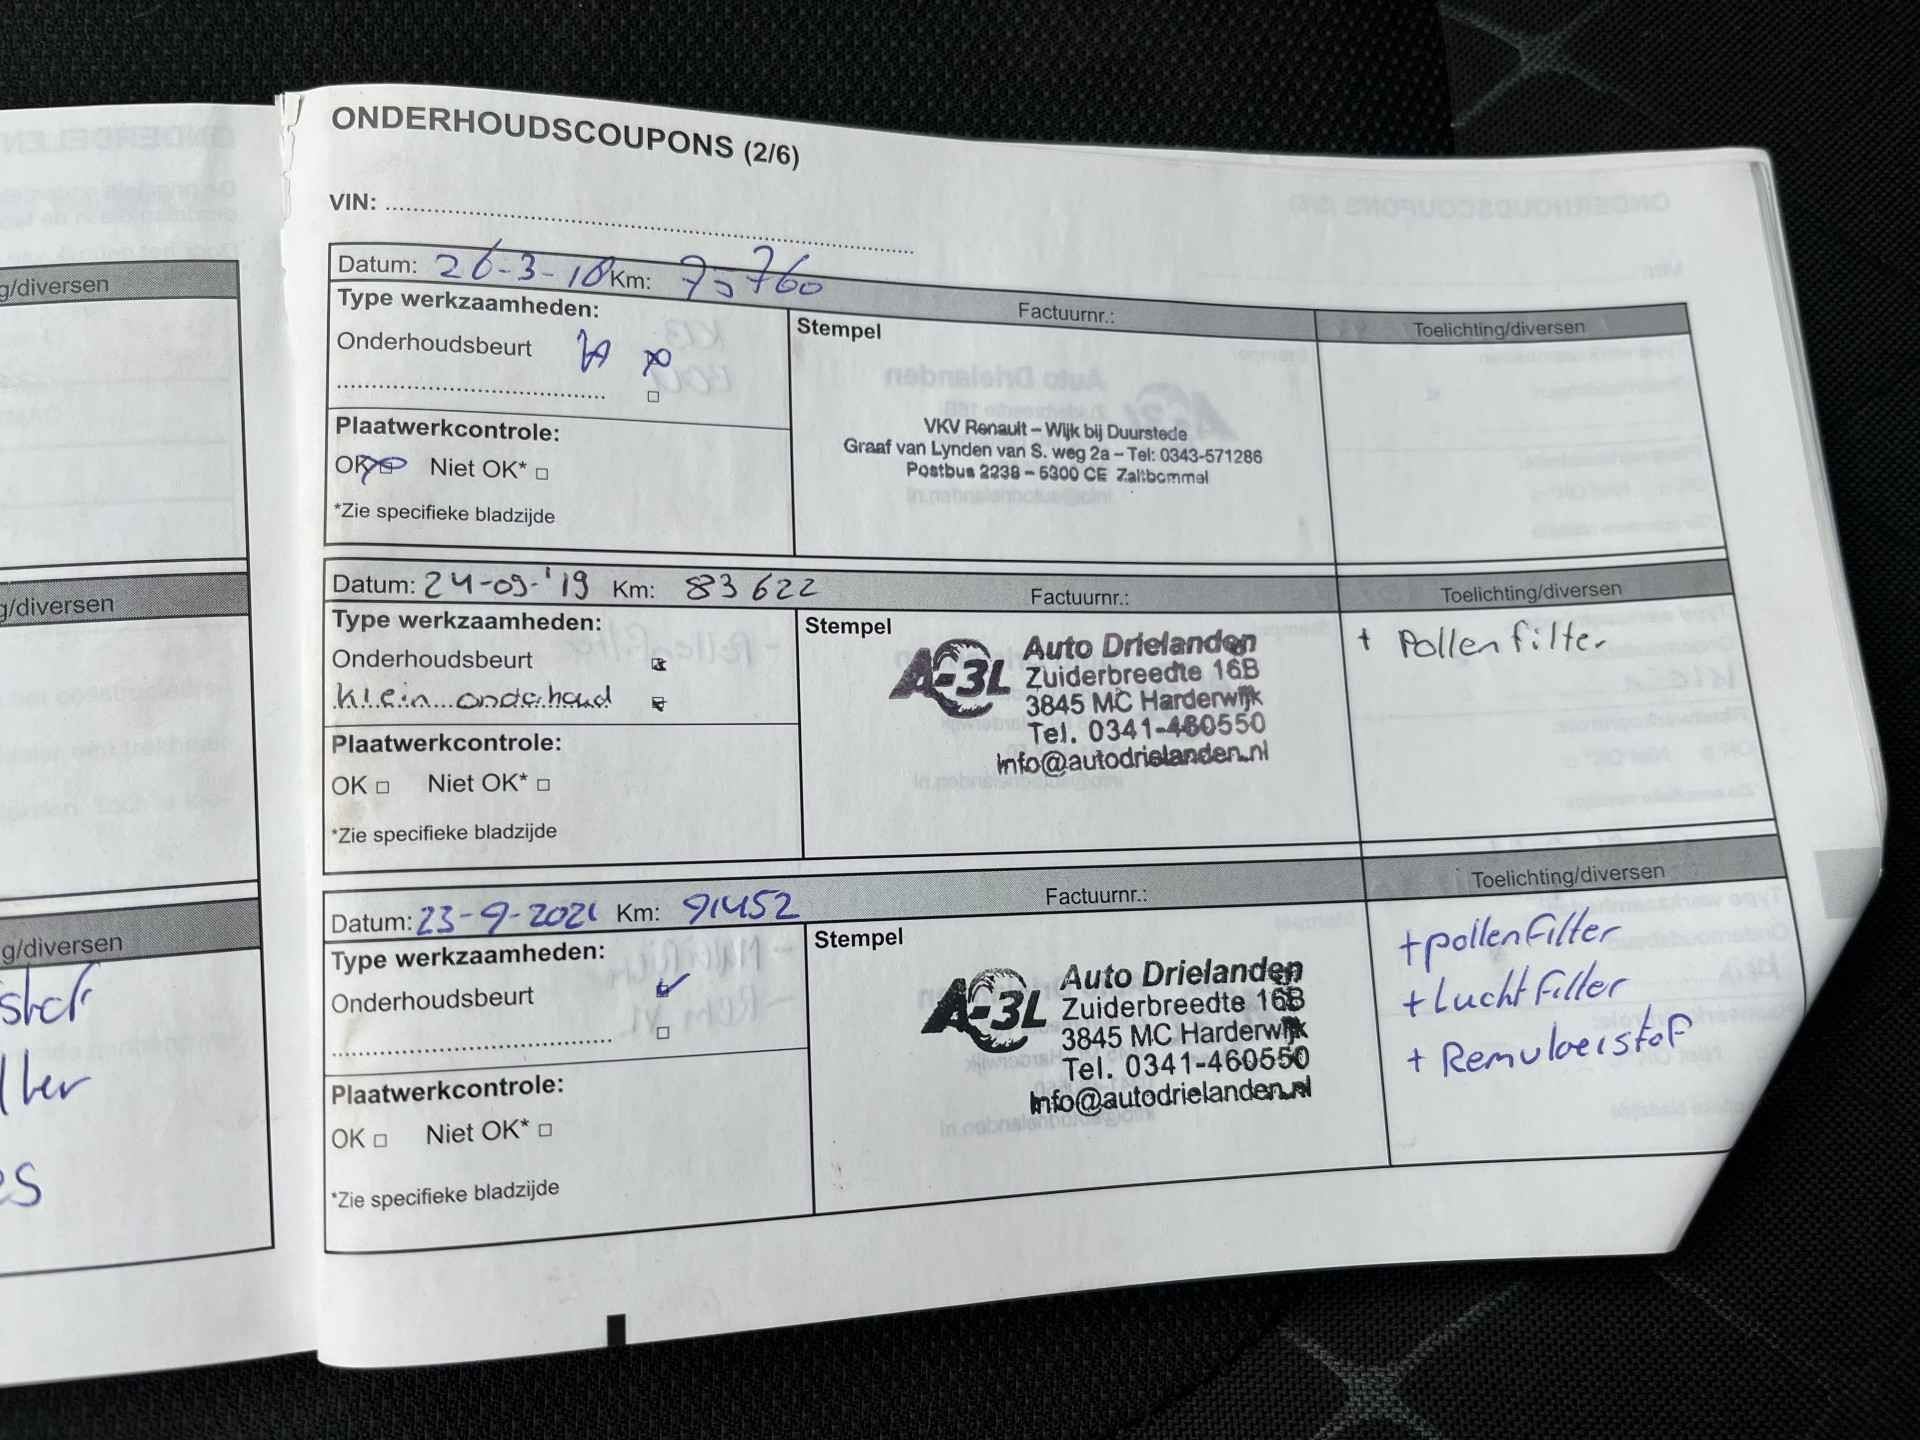 ONDERHOUDSCOUPONS (2/6)
VIN:
Datum: 26-3-18 Km:
Factuurnr.:
Toelichting/diversen
Type werkzaamheden:
Onderhoudsbeurt
Stempel
VKV Renault – Wijk bij Duurstede
Graaf van Lynden van S. weg 2a – Tel: 0343-571286
Postbus 2238 – 5300 CE Zaltbommel
Plaatwerkcontrole:
OK Niet OK*
*Zie specifieke bladzijde
Datum: 24-09-'19 Km: 83 622
Factuurnr.:
Toelichting/diversen
Type werkzaamheden:
Onderhoudsbeurt
klein onderhoud
Stempel
A-3L
Auto Drielanden
Zuiderbreedte 16B
3845 MC Harderwijk
Tel. 0341-460550
Info@autodrielanden.nl
+ Pollenfilter
Plaatwerkcontrole:
OK Niet OK*
*Zie specifieke bladzijde
Datum: 23-9-2021 Km: 91452
Factuurnr.:
Toelichting/diversen
Type werkzaamheden:
Onderhoudsbeurt
Stempel
A-3L
Auto Drielanden
Zuiderbreedte 16B
3845 MC Harderwijk
Tel. 0341-460550
Info@autodrielanden.nl
+pollenfilter
+Luchtfilter
+ Remvloeistof
Plaatwerkcontrole:
OK Niet OK*
*Zie specifieke bladzijde
g/diversen
g/diversen
g/diversen